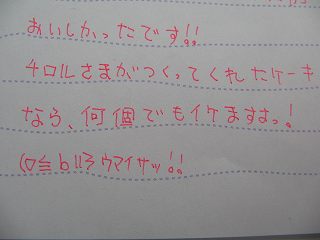 おいしかったです!!
チロルさまがつくってくれたケーキ
なら、何個でもイケますよっ!
ウマイサッ!!